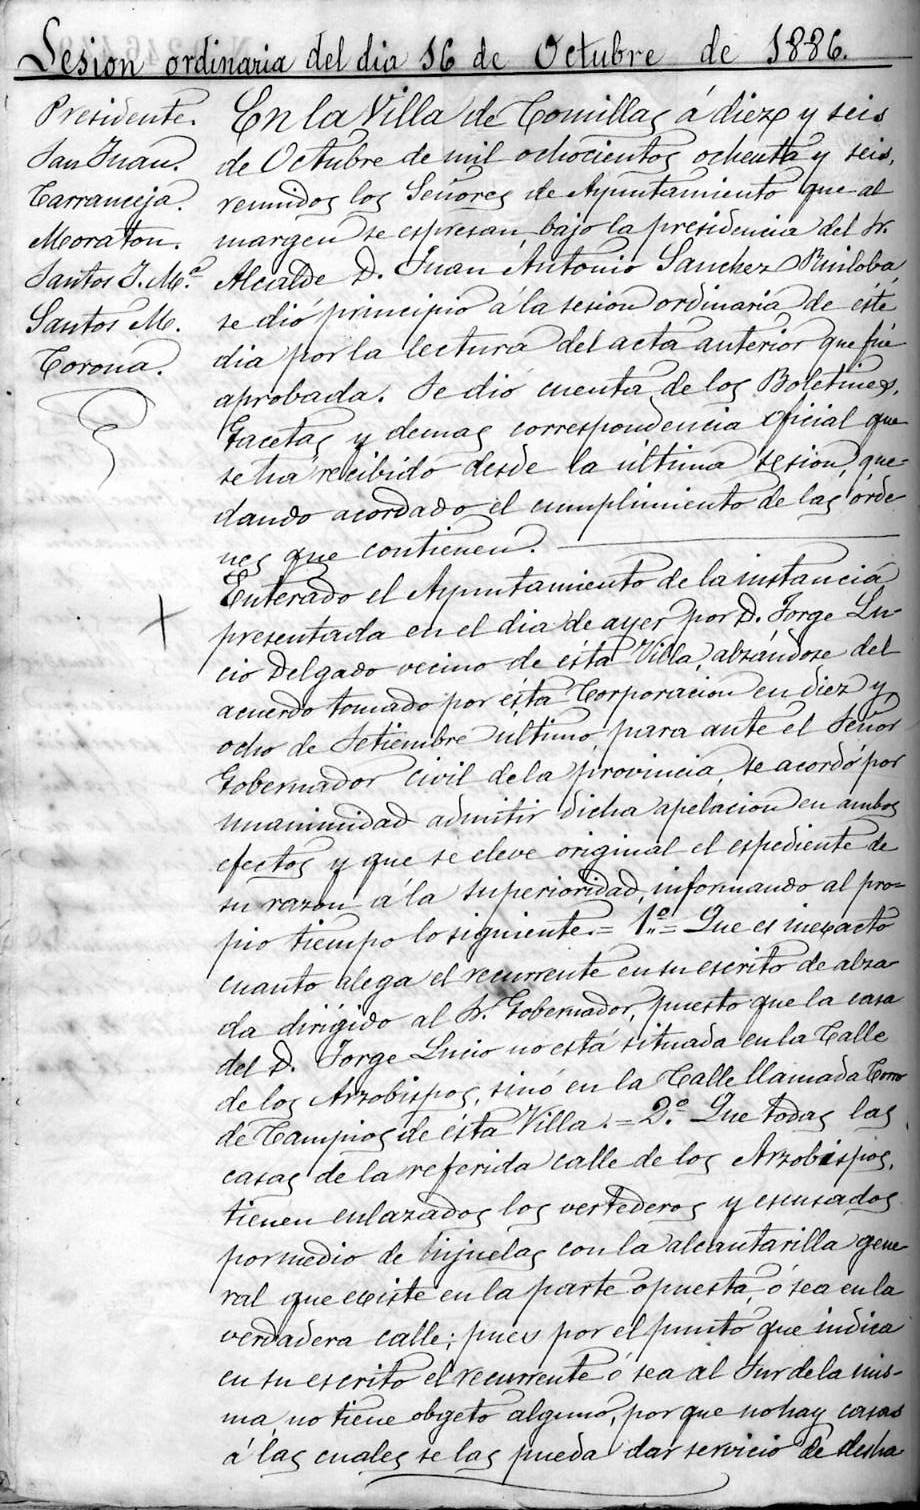 Sesion ordinaria del dia 16 de Octubre de 1886.
Presidente.
San Juan.
Carranceja.
Moraton.
Santos J. M.ª
Santos M.
Corona.
En la Villa de Comillas á diez y seis
de Octubre de mil ochocientos ochenta y seis,
reunidos los Señores de Ayuntamiento que al
margen se espresan, bajo la presidencia del Sr.
Alcalde D. Juan Antonio Sanchez Ruiloba,
se dió principio á la sesion ordinaria de éste
dia por la lectura del acta anterior que fué
aprobada. Se dió cuenta de los Boletines,
Gacetas y demas correspondencia oficial que
se há recibido desde la última sesion, que-
dando acordado el cumplimiento de las órde
nes que contienen.
Enterado el Ayuntamiento de la instancia
presentada en el dia de ayer por D. Jorge Lu-
cio Delgado vecino de ésta Villa, alzándose del
acuerdo tomado por ésta Corporacion en diez y
ocho de Setiembre último, para ante el Señor
Gobernador civil de la provincia, se acordó por
unanimidad admitir dicha apelacion en ambos
efectos y que se eleve original el espediente de
su razon á la superioridad, informando al pro-
pio tiempo lo siguiente. = 1.º = Que es inexacto
cuanto alega el recurrente en su escrito de alza-
da dirigido al Sr. Gobernador, puesto que la casa
del D. Jorge Lucio no está situada en la Calle
de los Arzobispos, sinó en la Calle llamada Corro
de Campios de ésta Villa. = 2.º Que todas las
casas de la referida calle de los Arzobispos,
tienen enlazados los vertederos y escusados
por medio de hijuelas con la alcantarilla gene-
ral que existe en la parte opuesta, ó sea en la
verdadera calle; pues por el punto que indica
en su escrito el recurrente ó sea al Sur de la mis-
ma, no tiene obgeto alguno, por que no hay casas
á las cuales se las pueda dar servicio de desha